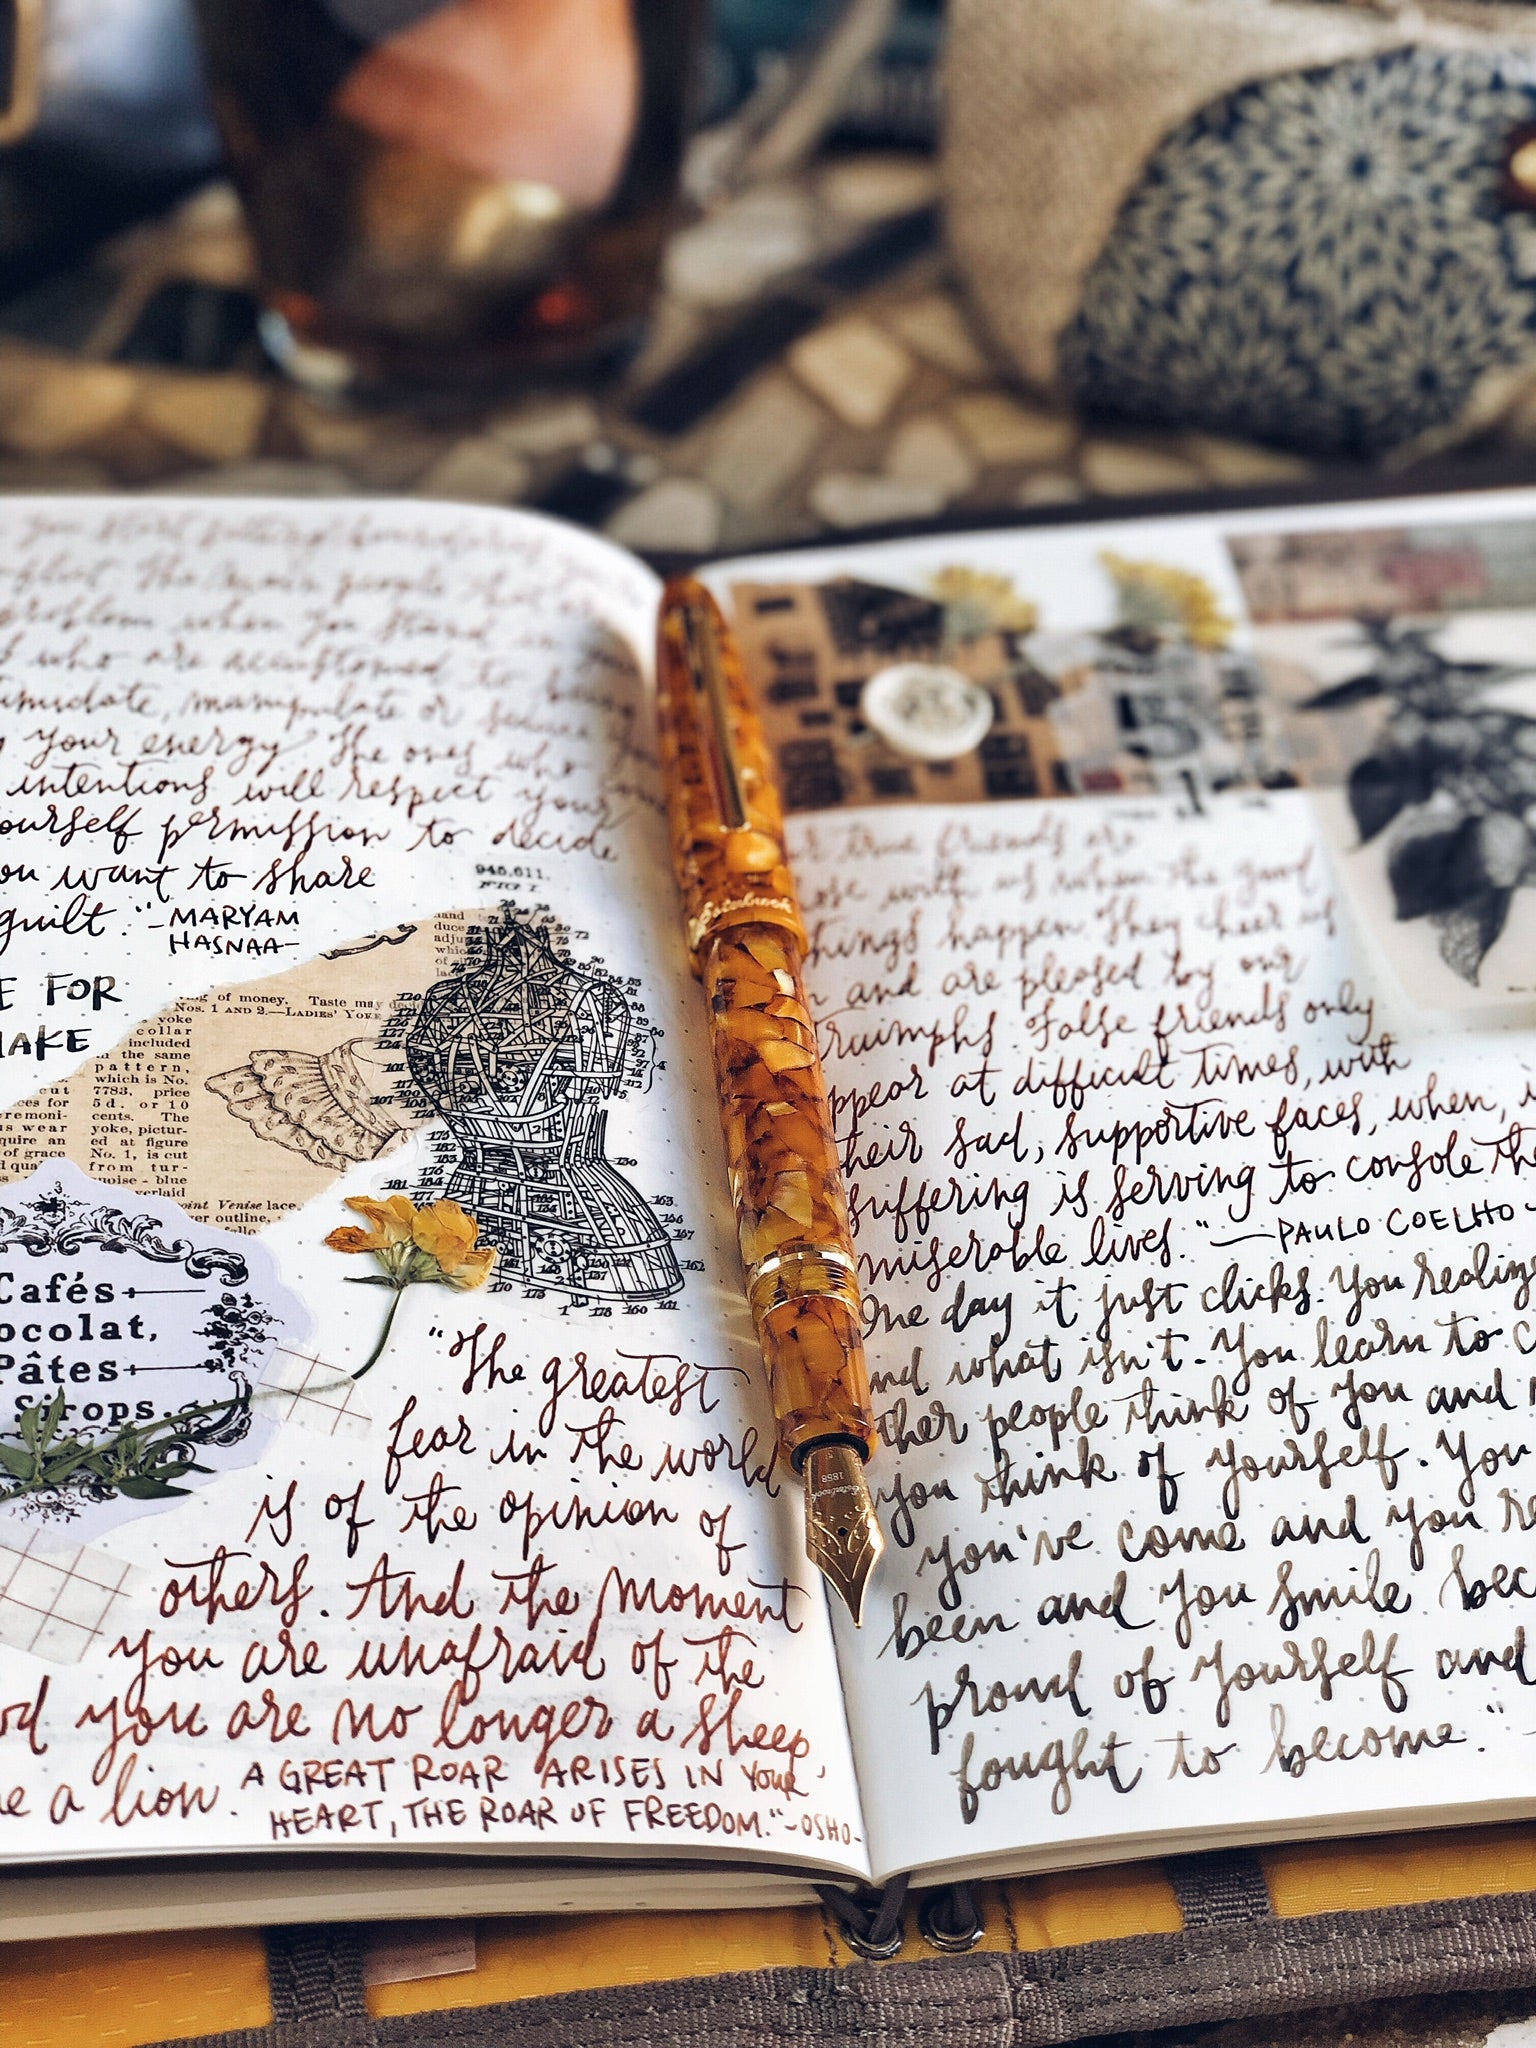 you start setting boundaries
conflict. The people that
problem when you stand in your
who are accustomed to being
intimidate, manipulate or
your energy. The ones who
intentions will respect your
yourself permission to decide
you want to share
guilt." - MARYAM
HASNAA -
E FOR
MAKE
946,611.
and
duce
adju
which
of
lac
of money. Taste may
Nos. 1 AND 2.—LADIES' YOKE
yoke
collar
included
in the same
pattern,
which is No.
7783, price
5d. or 10
cents. The
yoke, pictur-
ed at figure
No. 1, is cut
from tur-
quoise-blue
overlaid
Point Venise lace,
outline,
Cafés
ocolat,
Pâtes
Sirops.
"The greatest
fear in the world
is of the opinion of
others. And the moment
you are unafraid of the
you are no longer a sheep,
a lion. A GREAT ROAR ARISES IN YOUR
HEART, THE ROAR OF FREEDOM." - OSHO -
Esterbrook
1858
Esterbrook
15
1
true friends are
with us when the good
things happen. They cheer us
and are pleased by our
Triumphs. False friends only
appear at difficult times, with
their sad, supportive faces, when, i
suffering is serving to console the
miserable lives." - PAULO COELHO -
One day it just clicks. You realize
and what isn't. You learn to c
other people think of you and m
you think of yourself. You
you've come and you re
been and you smile bec
proud of yourself and
fought to become."